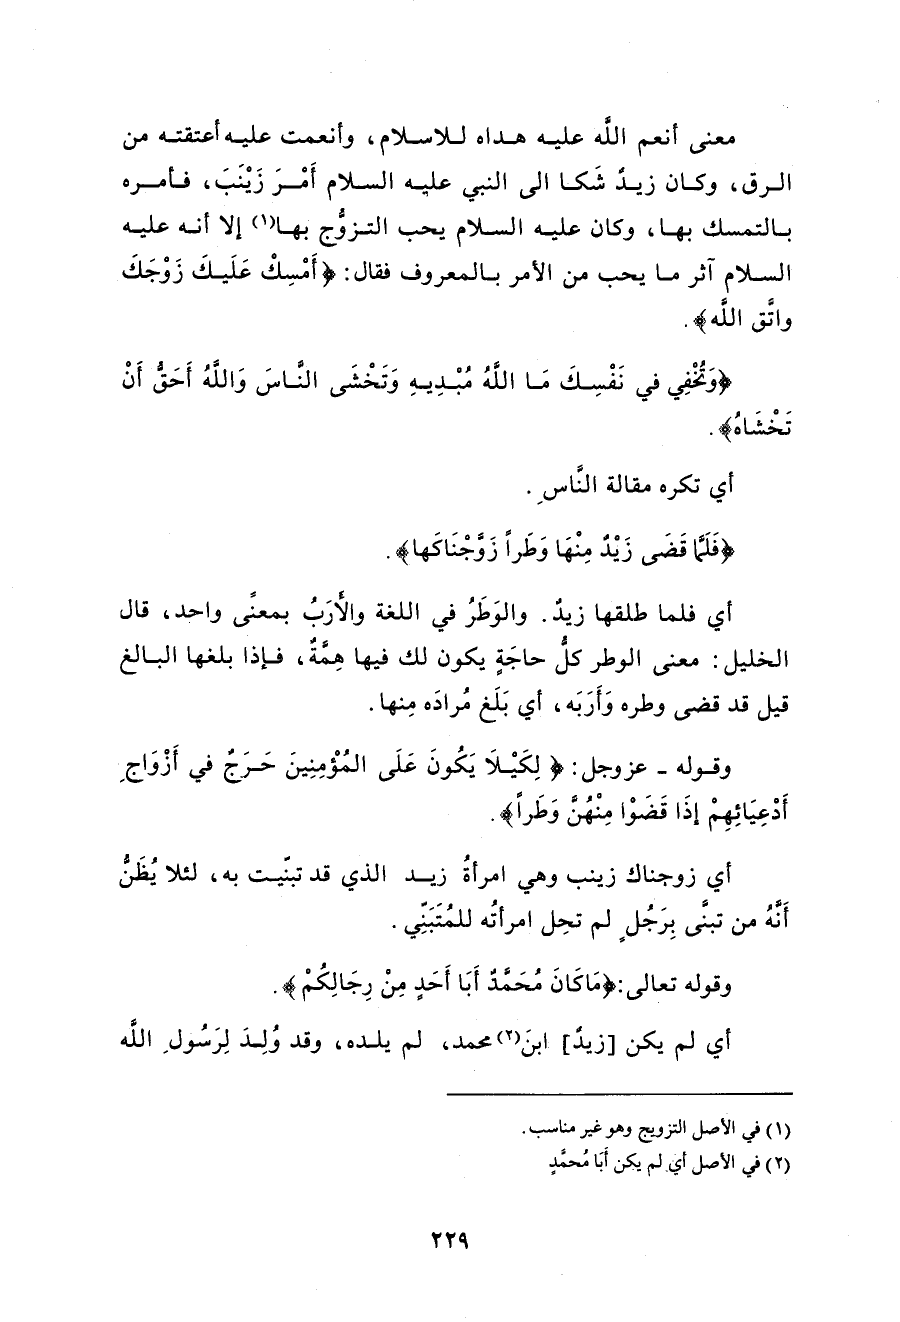 معنى أنعم اللَّه عليه هداه للاسلام، وأنعمت عليه أعتقته من
الرق، وكان زيدٌ شَكا الى النبي عليه السلام أَمْرَ زَيْنَبَ، فأمره
بالتمسك بها، وكان عليه السلام يحب التزوُّج بها(١) إلا أنه عليه
السلام آثر ما يحب من الأمر بالمعروف فقال: ﴿أَمْسِكْ عَلَيكَ زَوْجَكَ
واتَّق اللَّه﴾.
﴿وَتُخْفِي في نَفْسِكَ مَا اللَّهُ مُبْدِيهِ وَتَخْشَى النَّاسَ وَاللَّهُ أَحَقُّ أَنْ
تَخْشَاهُ﴾.
أي تكره مقالة النَّاسِ.
﴿فَلَمَّا قَضَى زَيْدٌ مِنْهَا وَطَراً زَوَّجْنَاكَها﴾.
أي فلما طلقها زيدٌ. والوَطَرُ في اللغة والأَرَبُ بمعنًى واحد، قال
الخليل: معنى الوطر كلُّ حاجَةٍ يكون لك فيها هِمَّةٌ، فإذا بلغها البالغ
قيل قد قضى وطره وَأَرَبَه، أي بَلَغ مُرادَه مِنها.
وقوله - عز وجل: ﴿لِكَيْلَا يَكُونَ عَلَى المُؤْمِنِينَ حَرَجٌ في أَزْوَاجِ
أَدْعِيَائِهِمْ إذَا قَضَوْا مِنْهُنَّ وَطَراً﴾.
أي زوجناك زينب وهي امرأةُ زيد الذي قد تبنّيت به، لئلا يُظَنُّ
أَنَّهُ من تبنَّى بِرَجُلٍ لم تحِل امرأتُه للمُتَبَنِّي.
وقوله تعالى: ﴿مَاكَانَ مُحَمَّدٌ أَبَا أَحَدٍ مِنْ رِجَالِكُمْ﴾.
أي لم يكن [زيدٌ] ابنَ(٢) محمد، لم يلده، وقد وُلِدَ لِرَسُولِ اللَّه
(١) في الأصل التزويج وهو غير مناسب.
(٢) في الأصل أي لم يكن أَبَا مُحمَّدٍ
٢٢٩